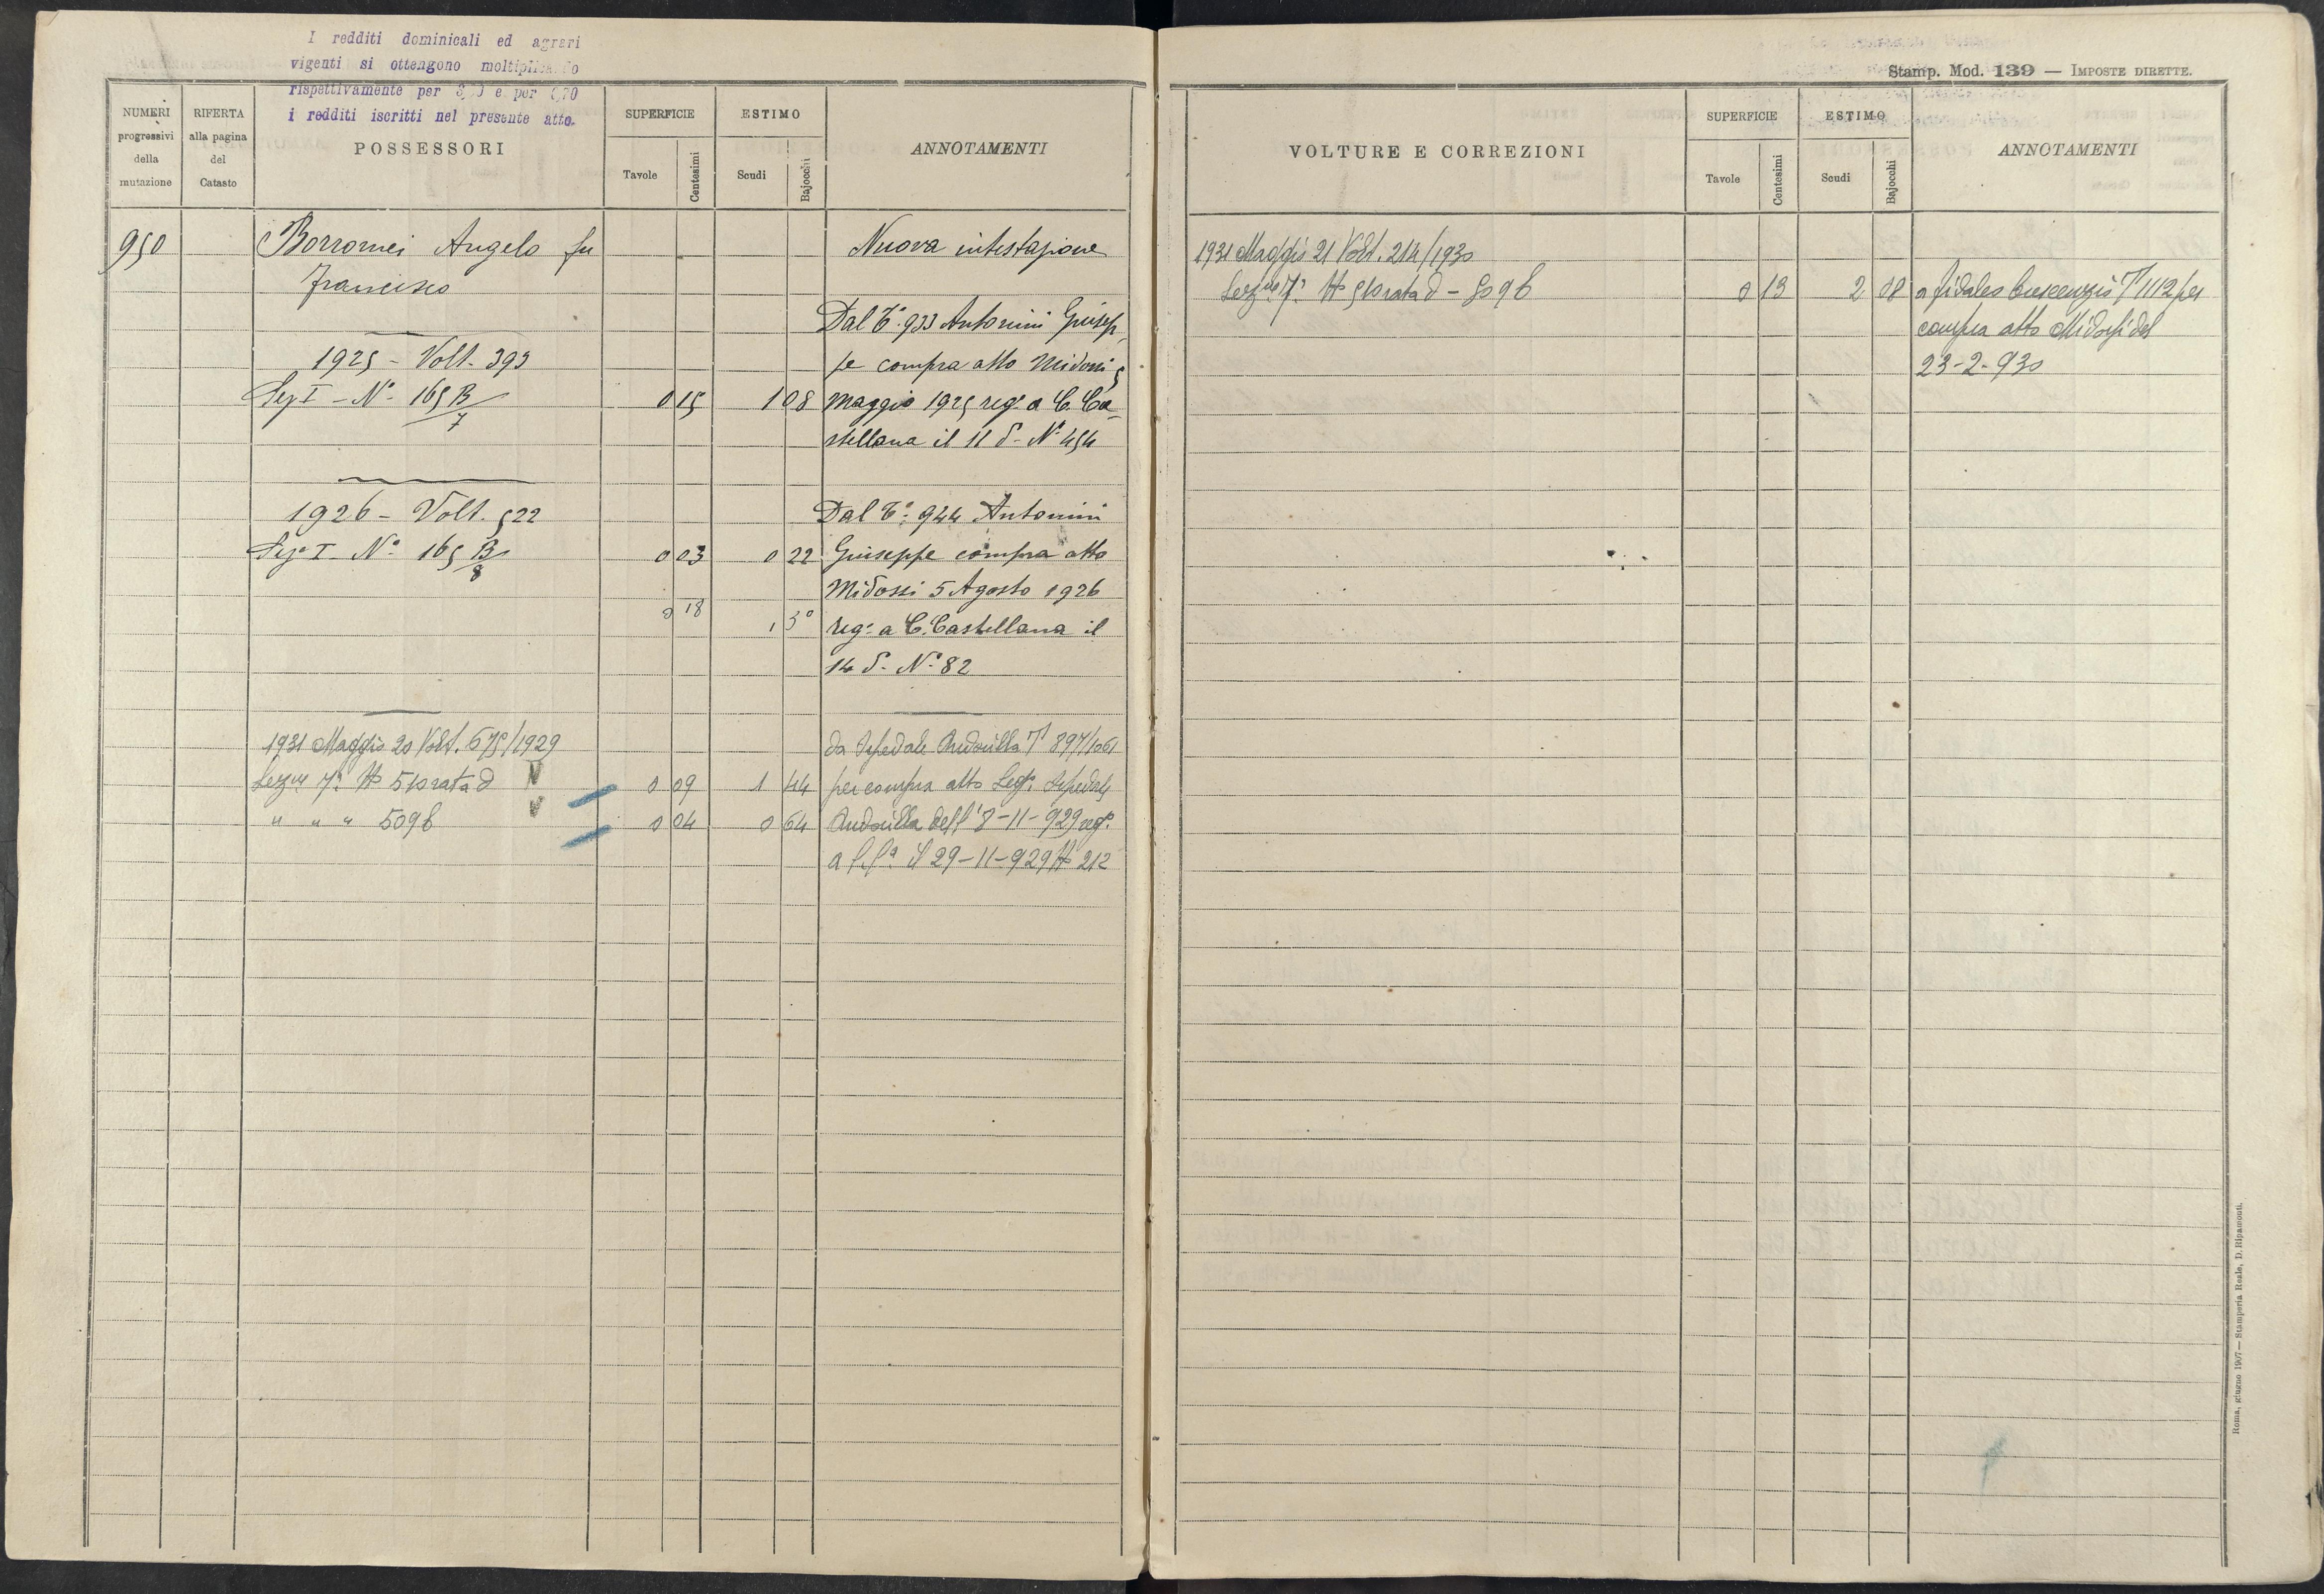 I redditi dominicali ed agrari
vigenti si ottengono moltiplicando
rispettivamente per e per
i redditi iscritti nel presente atto.
NUMERI progressivi della mutazione
RIFERTA alla pagina del Catasto
POSSESSORI
SUPERFICIE
Tavole
Centesimi
ESTIMO
Scudi
Bajocchi
ANNOTAMENTI
950 Borromei Angelo fu Nuova intestazione
Francesco
Dal T.º 933 Antonini Giusep-
1925 - Volt. 393 pe compra atto Midossi 5
Sez I - Nº 165 B/7 0 15 1 08 maggio 1925 reg.º a C. Ca-
stellana il 11 d.º Nº 454
1926 - Volt. 522 Dal T.º 944 Antonini
Sez I - Nº 165 B/8 0 03 0 22 Giuseppe compra atto
Midossi 5 Agosto 1926
0 18 1 30 reg.º a C. Castellana il
14 d.º Nº 82
1931 Maggio 20 Volt. 675/1929 da 897/1061
Sez 7ª Nº 510 rata d 0 09 1 44 per compra atto
" " " 509 b 0 04 0 64 dell' 8-11-929 reg.
a il 29-11-929 Nº 212
Stamp. Mod. 139 — IMPOSTE DIRETTE.
VOLTURE E CORREZIONI
SUPERFICIE
Tavole
Centesimi
ESTIMO
Scudi
Bajocchi
ANNOTAMENTI
1931 Maggio 21 Volt. 214/1930
7ª Nº 510 rata d - 509 b 0 13 2 08 a Crescenzio T 1112 per
compra atto Midossi del
23-2-930
Roma, giugno 1907 — Stamperia Reale, D. Ripamonti.